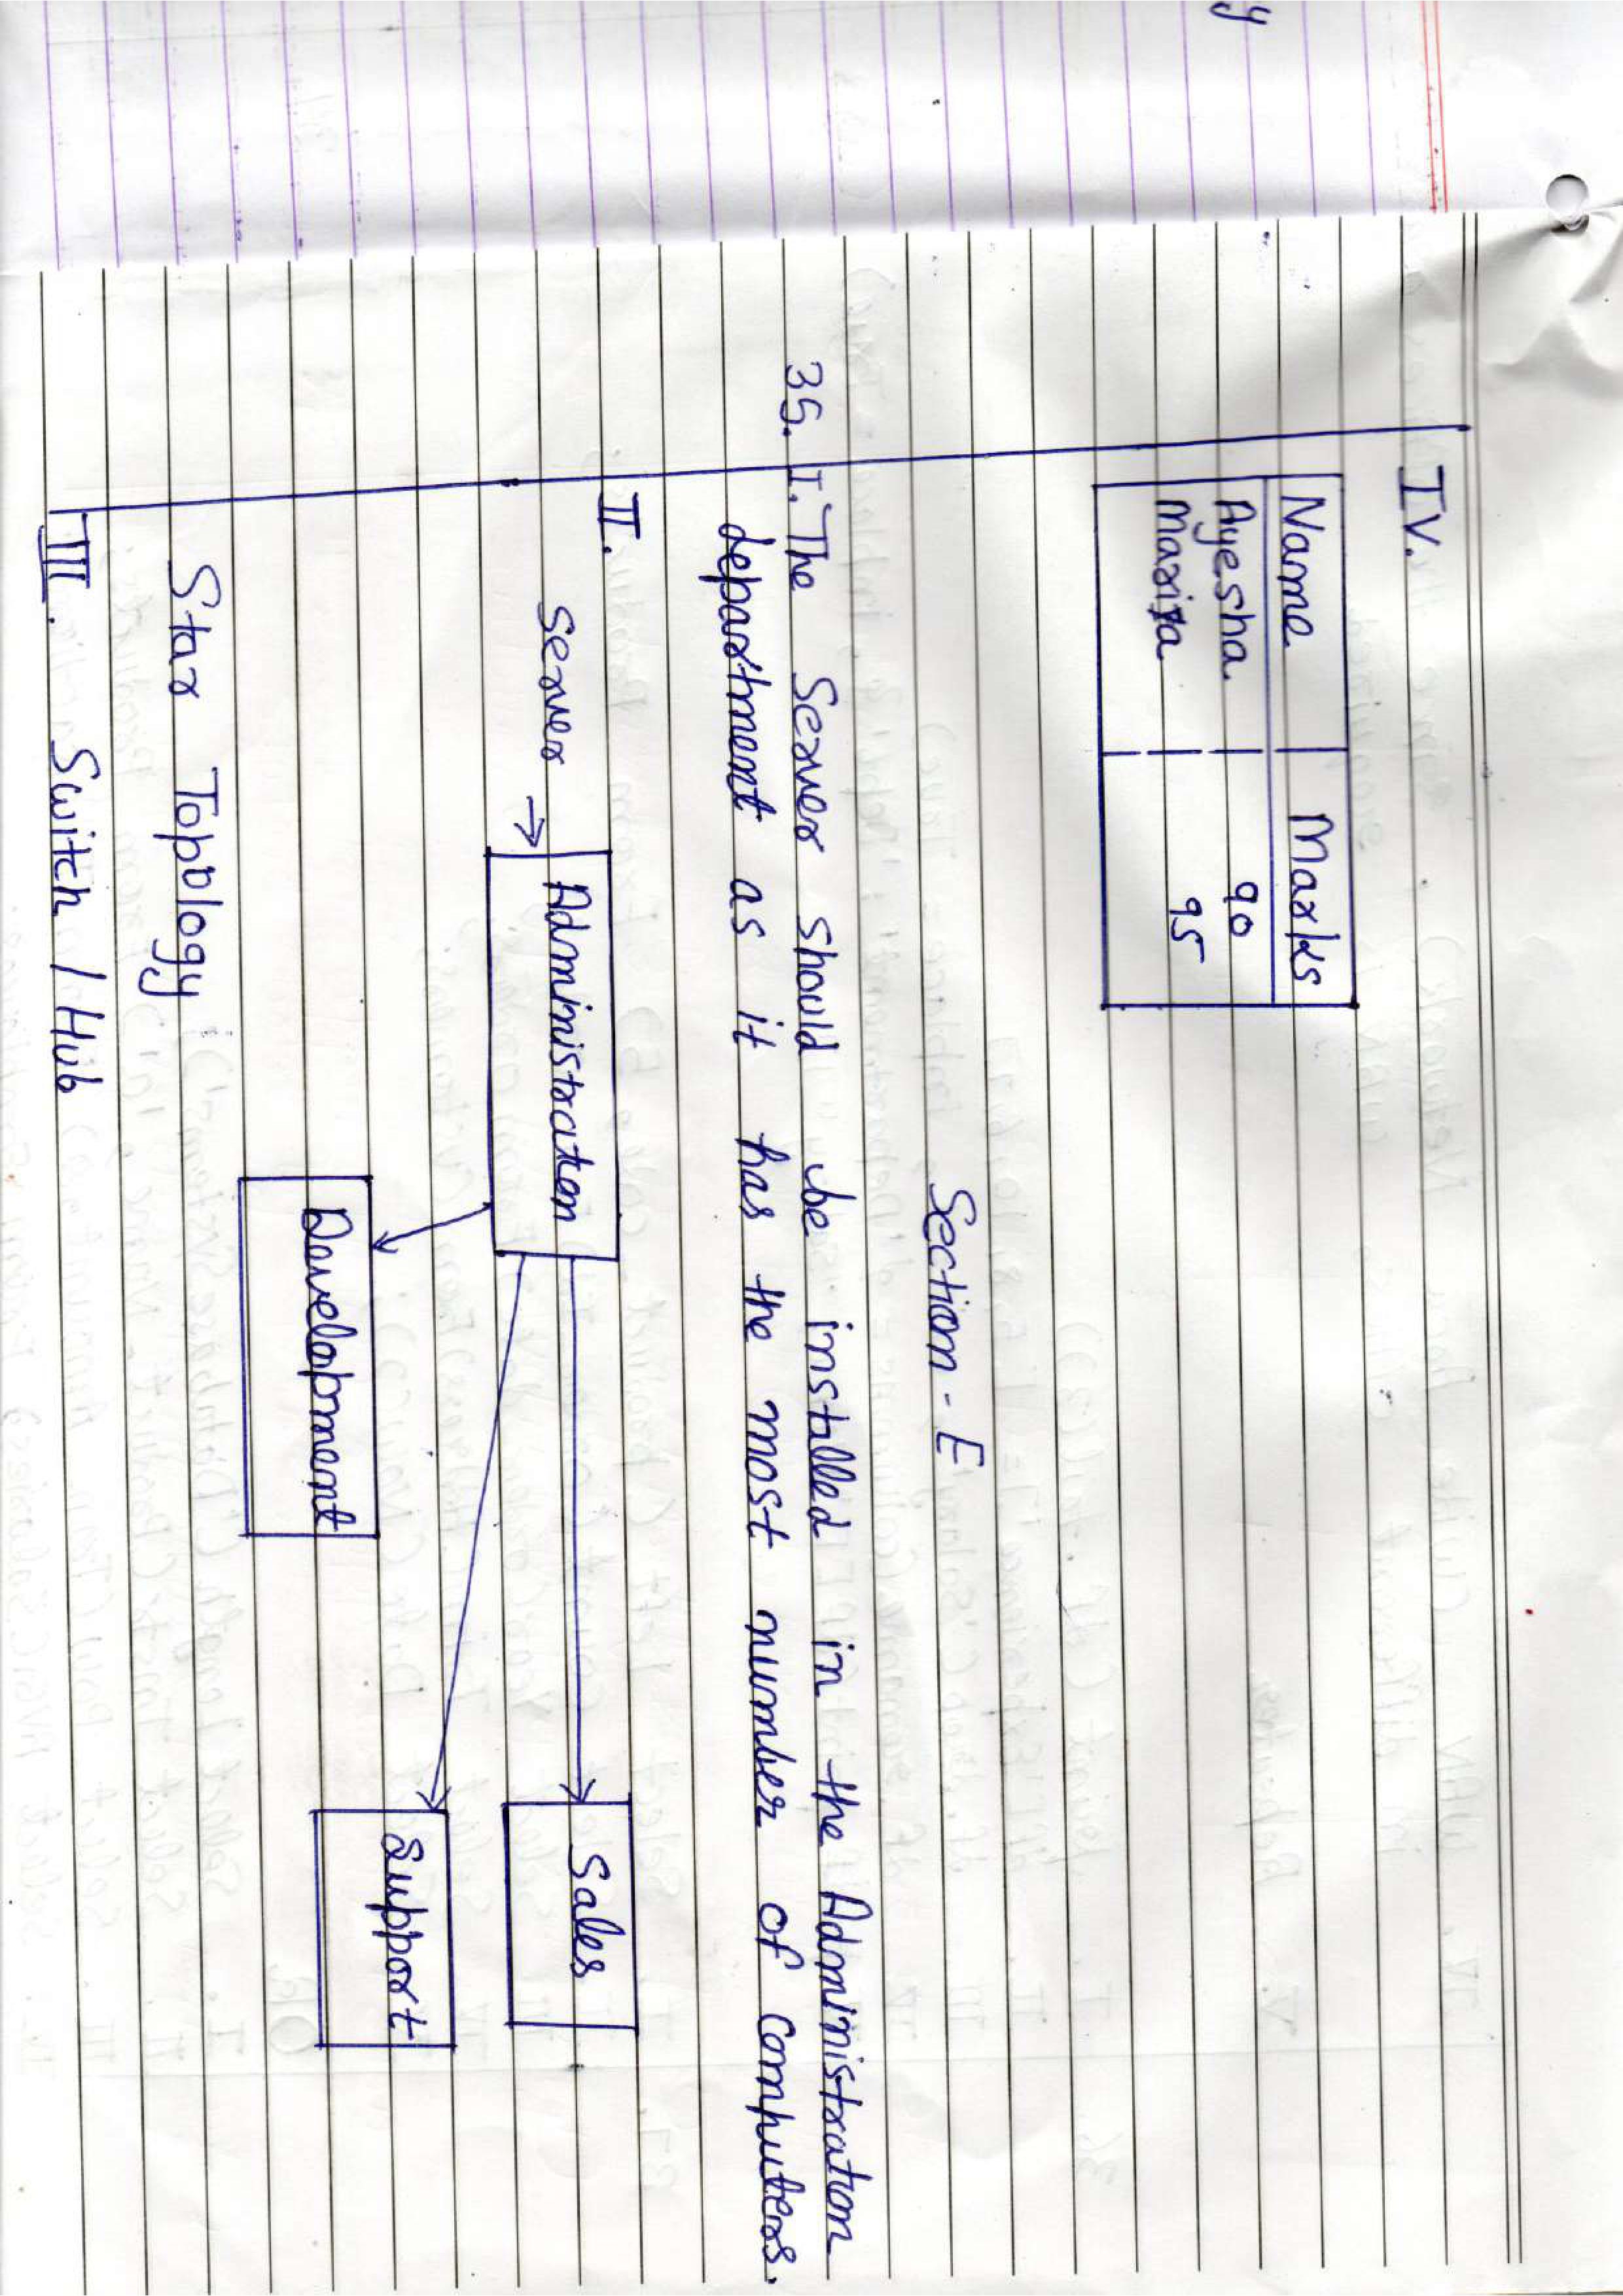 IV.
Name Marks
Ayesha 90
Mariya 95
y
Section - E
35. I. The Server should be installed in the Administration
department as it has the most number of computers.
II.
Server → Administration
Sales
Support
Development
Star Topology
III. Switch / Hub